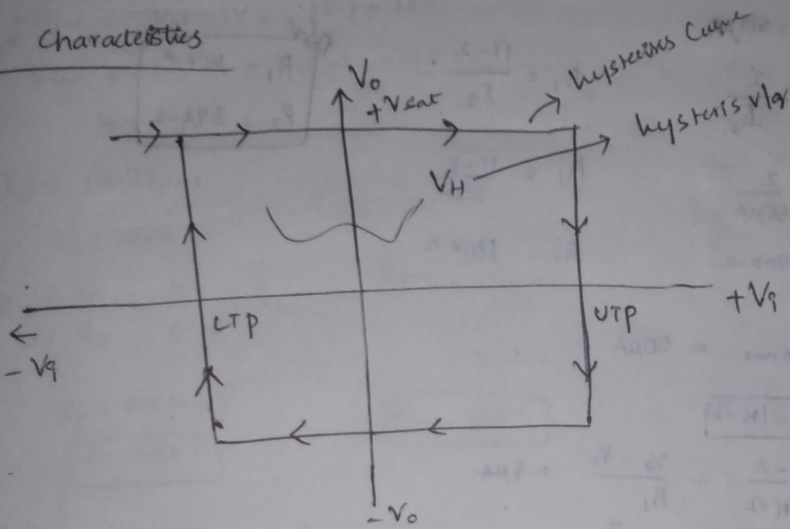 Characteristics
Vo
+Vsat
hysterises Curve
hysteris v/g
VH
LTP
UTP
+Vi
- Vi
- Vo